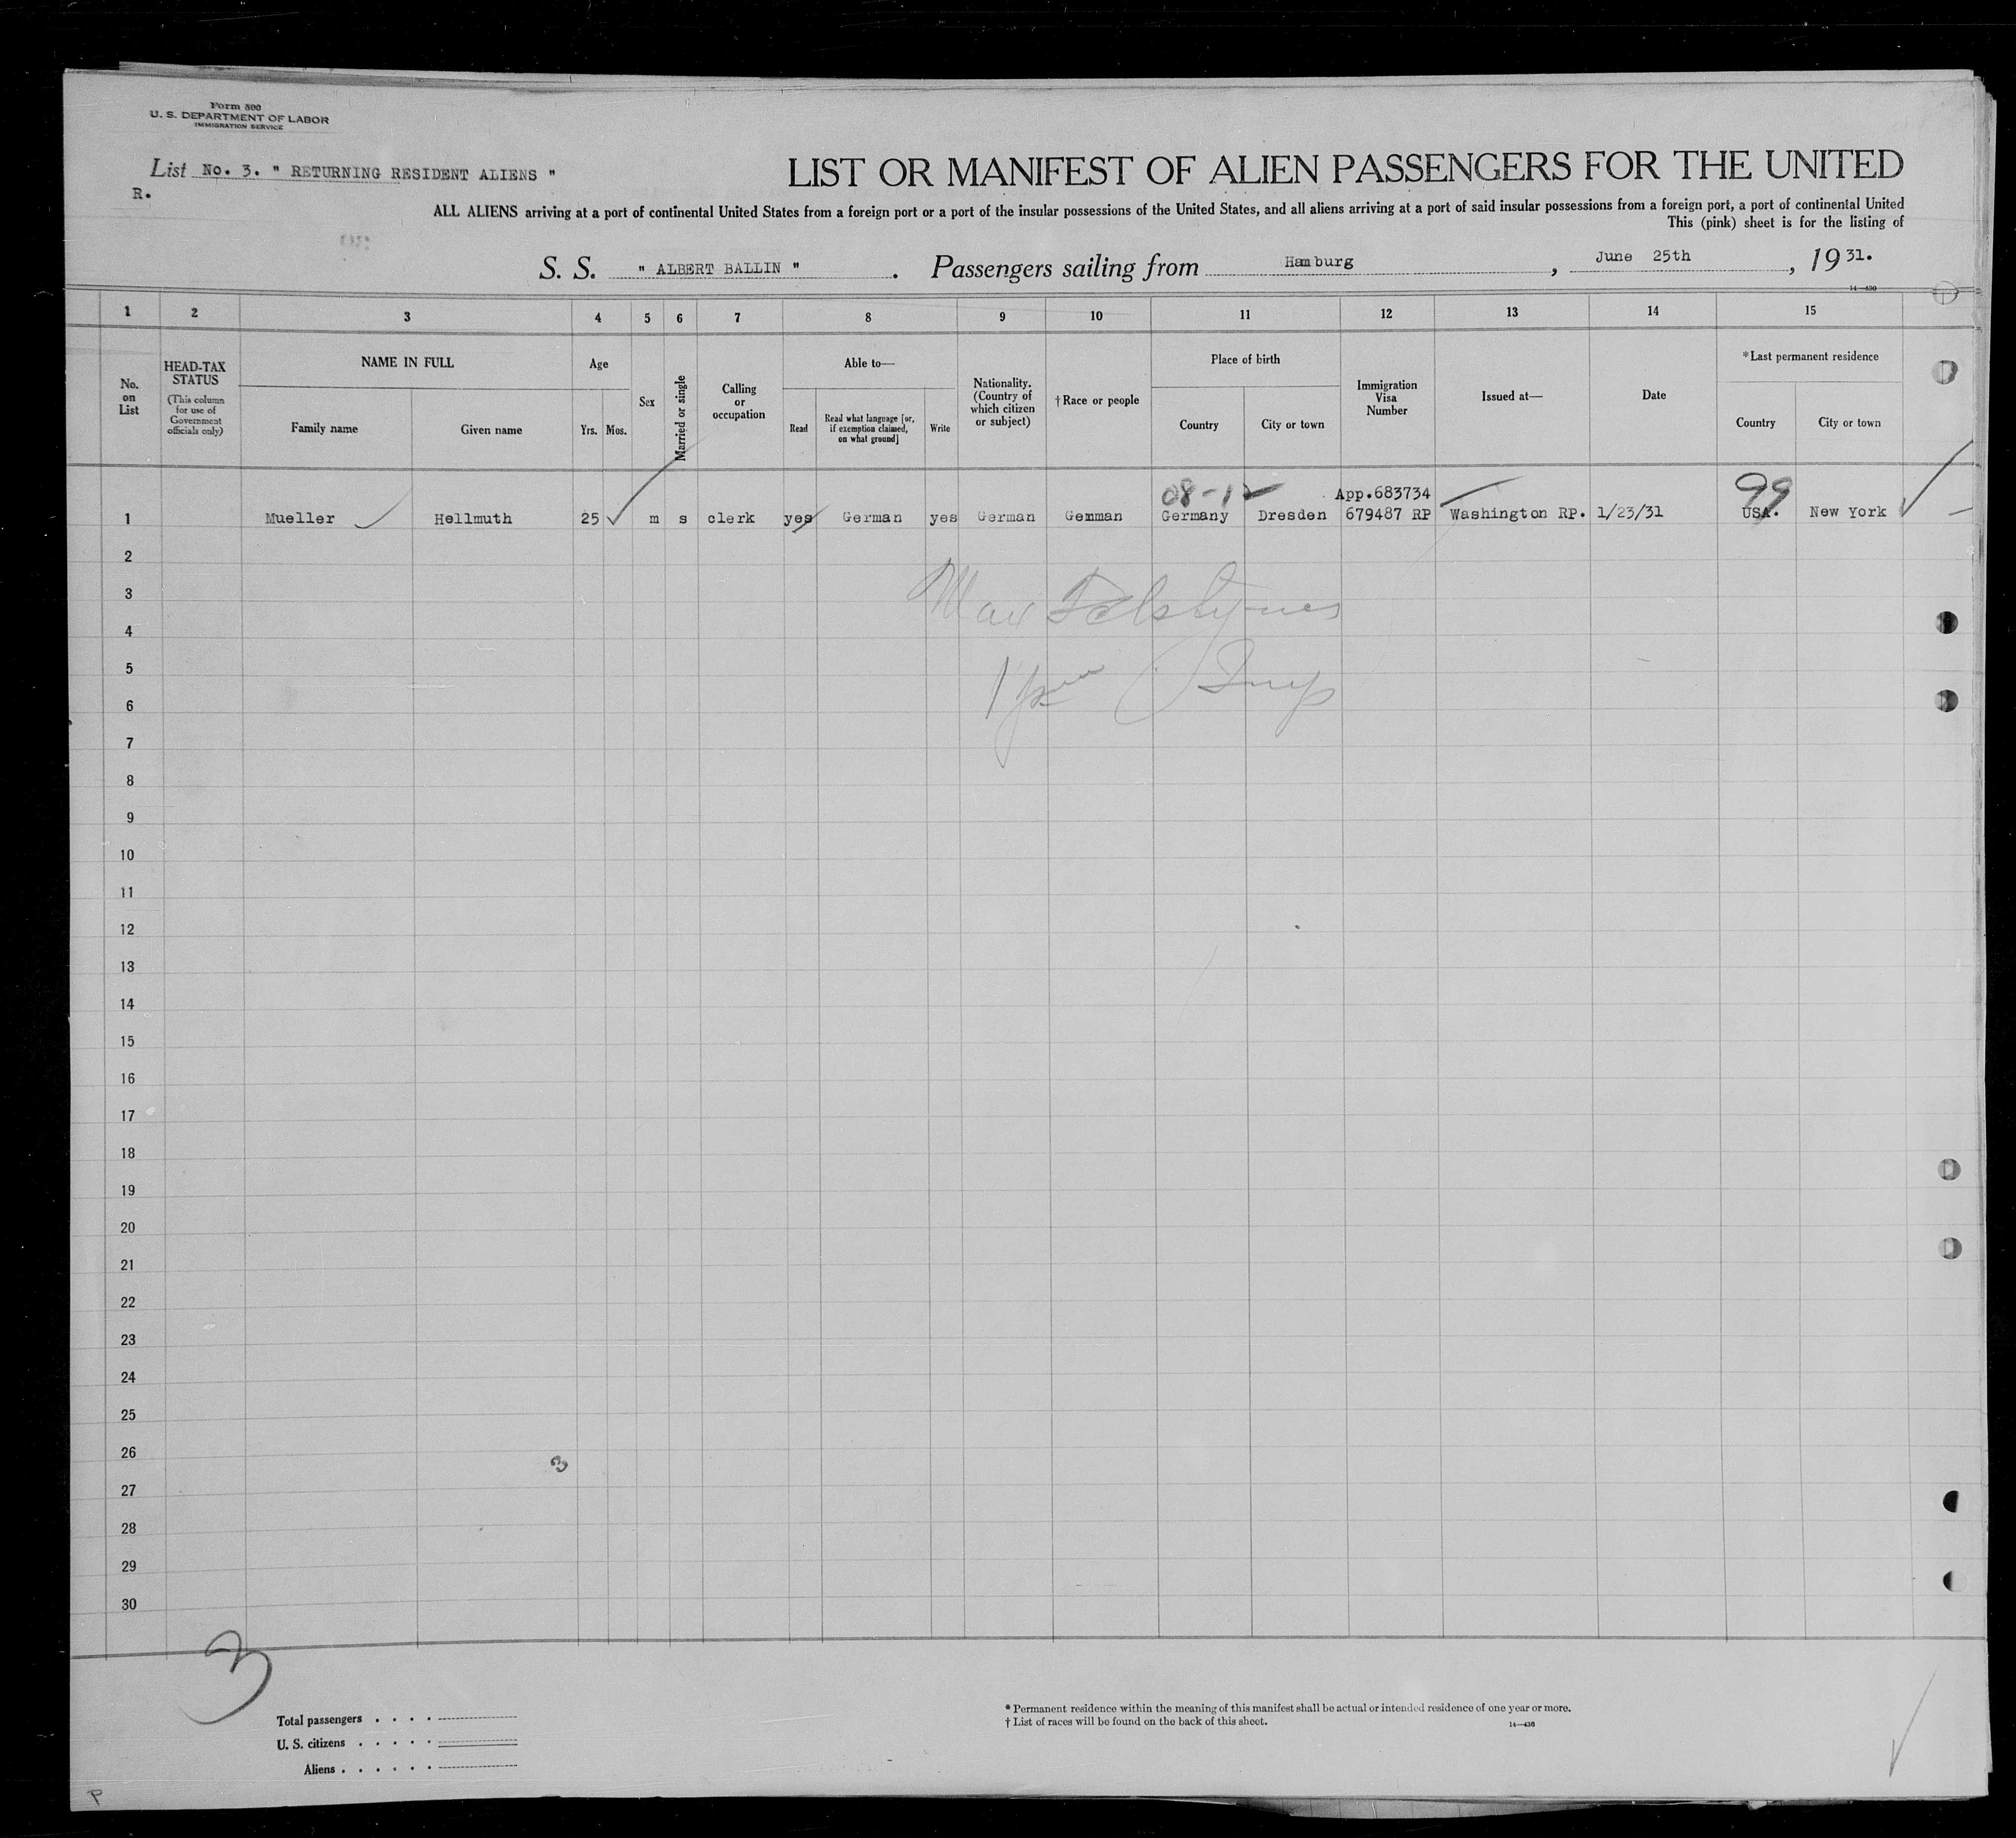 Form 500
U. S. DEPARTMENT OF LABOR
IMMIGRATION SERVICE
List No. 3. " RETURNING RESIDENT ALIENS "
R.
LIST OR MANIFEST OF ALIEN PASSENGERS FOR THE UNITED
ALL ALIENS arriving at a port of continental United States from a foreign port or a port of the insular possessions of the United States, and all aliens arriving at a port of said insular possessions from a foreign port, a port of continental United
This (pink) sheet is for the listing of
S. S. " ALBERT BALLIN " . Passengers sailing from Hamburg , June 25th , 19 31.
14—430
1 2 3 4 5 6 7 8 9 10 11 12 13 14 15
No. on List
HEAD-TAX STATUS
(This column for use of Government officials only)
NAME IN FULL
Family name
Given name
Age
Yrs. Mos.
Sex
Married or single
Calling or occupation
Able to—
Read
Read what language [or, if exemption claimed, on what ground]
Write
Nationality. (Country of which citizen or subject)
†Race or people
Place of birth
Country
City or town
Immigration Visa Number
Issued at—
Date
*Last permanent residence
Country
City or town
08-12 App.683734 99
1 Mueller Hellmuth 25 m s clerk yes German yes German Gemman Germany Dresden 679487 RP Washington RP. 1/23/31 USA. New York
2
3
4
5
6
7
8
9
10
11
12
13
14
15
16
17
18
19
20
21
22
23
24
25
26
3
27
28
29
30
3
Total passengers . . . .
U. S. citizens . . . . .
Aliens . . . . . .
* Permanent residence within the meaning of this manifest shall be actual or intended residence of one year or more.
† List of races will be found on the back of this sheet.
14—430
P